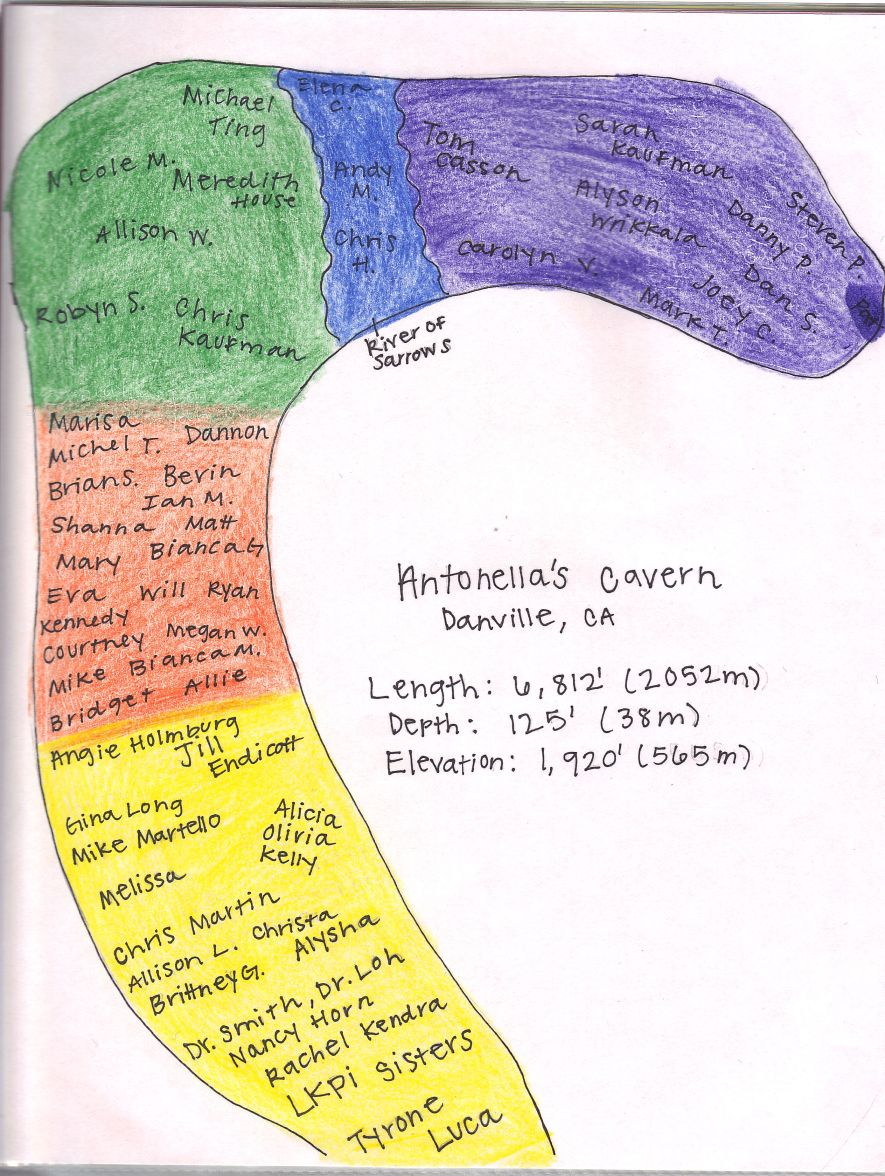 Michael
Ting
Nicole M.
Meredith
House
Allison W.
Robyn S.
Chris
Kaufman
Elena
C.
Andy
M.
Chris
H.
River of
Sarrows
Tom
Casson
Sarah
Kaufman
Alyson
Wrikkala
Carolyn V.
Steven P.
Danny P.
Dan S.
Joey C.
Mark T.
Marisa
Michel T. Dannon
Brian S. Bevin
Ian M.
Shanna Matt
Mary Bianca G
Eva Will Ryan
Kennedy
Courtney Megan W.
Mike Bianca M.
Bridget Allie
Angie Holmburg
Jill
Endicott
Gina Long
Mike Martello
Alicia
Olivia
Kelly
Melissa
Chris Martin
Allison L. Christa
Brittney G. Alysha
Dr. Smith, Dr. Loh
Nancy Horn
Rachel Kendra
LKPi Sisters
Tyrone
Luca
Antonella's Cavern
Danville, CA
Length: 6,812' (2052m)
Depth: 125' (38m)
Elevation: 1,920' (565m)